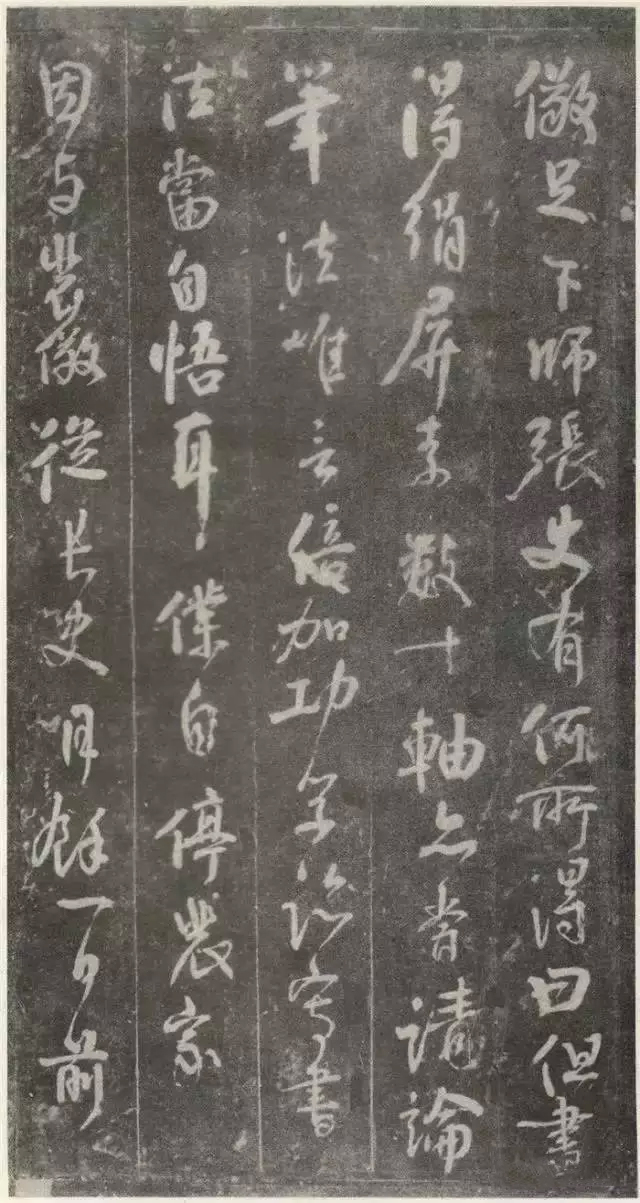 儆足下師張史有何所得曰但書
得絹屏素數十軸亦甞請論
筆法唯言倍加功學臨寫書
法當自悟耳僕自停裴家
因与裴儆從長史月餘一日前